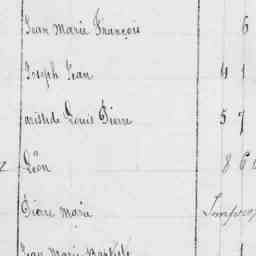 Jean Marie François 6
Joseph Jean 4 1
aristide Louis Pierre 5 7
Léon 8 6
Pierre Marie
Jean Marie Baptiste